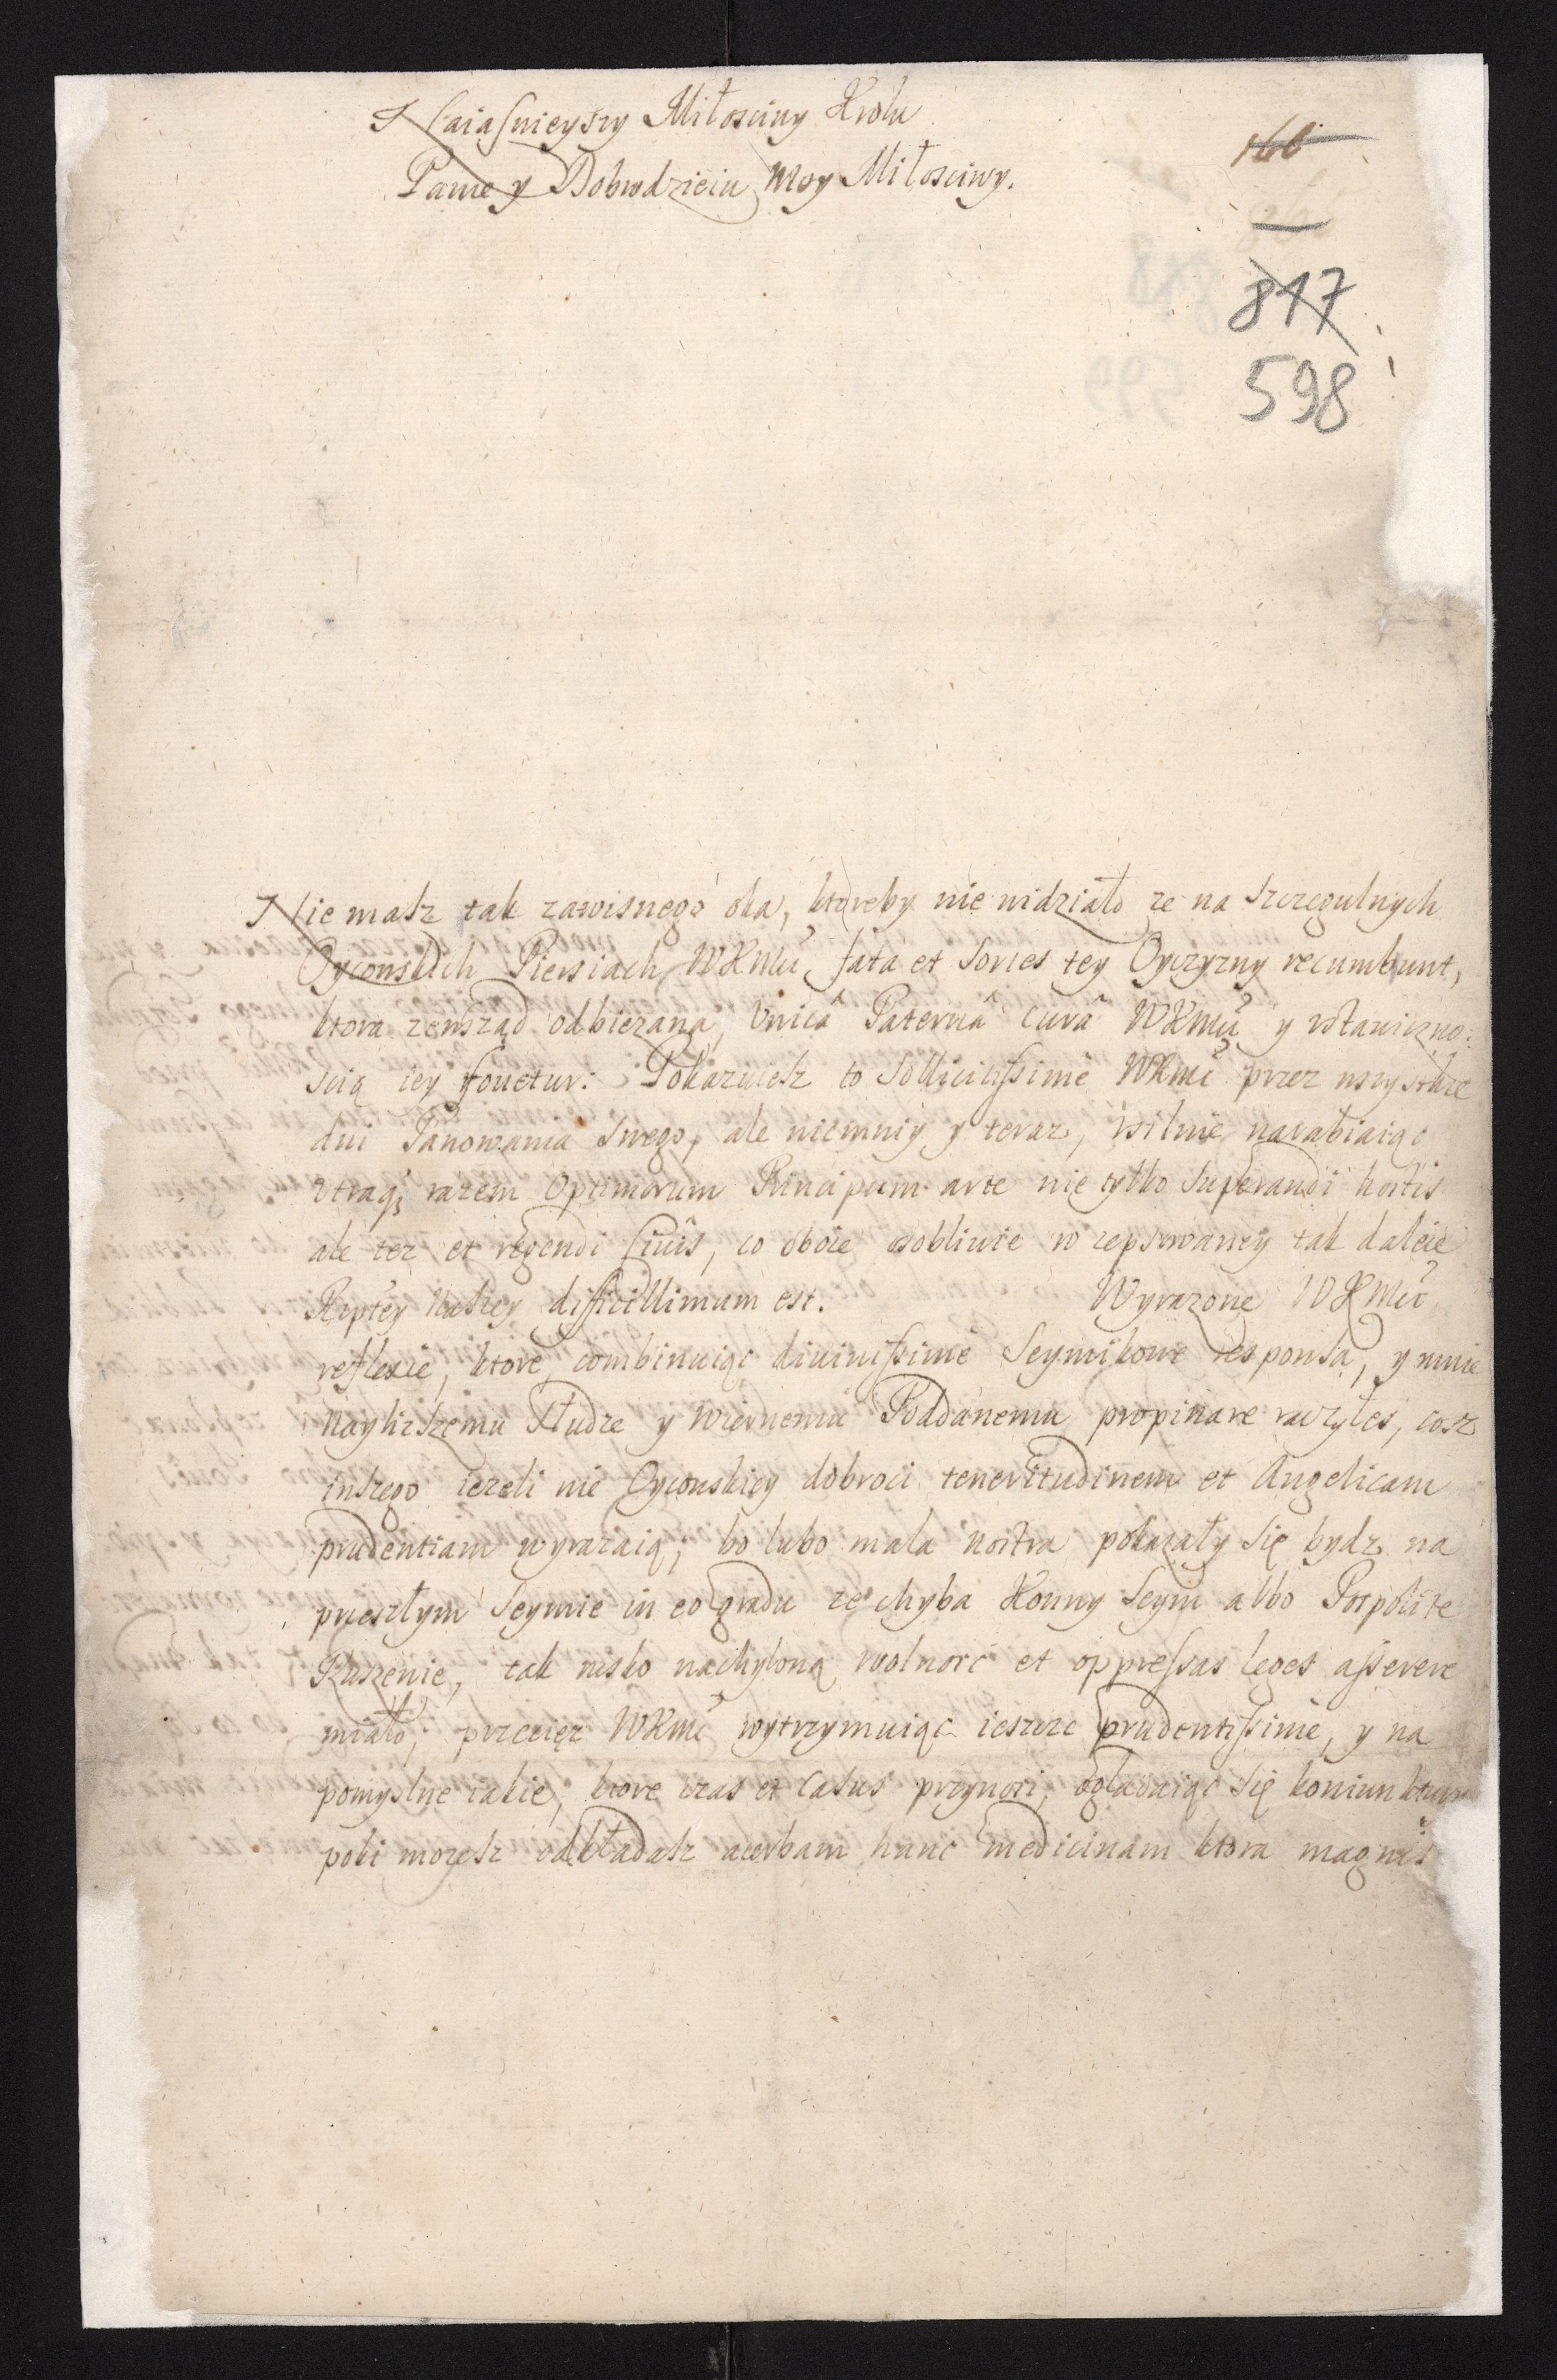 Naiasnieyszy Miłosciwy Krolu
Panie y Dobrodzieiu Moy Miłosciwy.
160
817
598
Nie masz tak zawisnego oka, ktoreby nie widziało ze na szczegulnych
Oycowskich Piersiach WKMci, fata et Sortes tey Oyczyzny recumbunt,
ktora zewsząd odbiezana, Unicâ Paternâ curâ WKMci y ustawiczno:
scią iey fovetur: Pokazuiesz to Sollicitissime WKMć przez wszystkie
dni Panowania Swego, ale niemniy y teraz, usilnie narabiaiąc
utraq; razem Optimorum Principum arte nie tylko Superandi hostis
ale tez et regendi Civis, co oboie osobliwie w zepsowaney tak dalece
Rzptey Naszey difficillimum est. Wyrazone WKMci
reflexie, ktore combinuiąc divinissime Seymikowe responsa, y mnie
Nayniszemu Słudze y Wiernemu Poddanemu propinare raczyłes, cosz
inszego iezeli nie Oycowskiey dobroci teneritudinem et Angelicam
prudentiam wyrazaią; bo lubo mala nostra pokazały się bydz na
przeszłym Seymie in eo gradu ze chyba Konny Seym albo Pospolite
Ruszenie, tak nisko nachyloną wolnosc et oppressas leges asserere
miało; przecięz WKMć wytrzymuiąc ieszcze prudentissime, y na
pomyslne iakie, ktore czas et Casus przynosi, oglądaiąc się koniunktury
poki mozesz odkładasz acerbam hanc medicinam ktora magnis